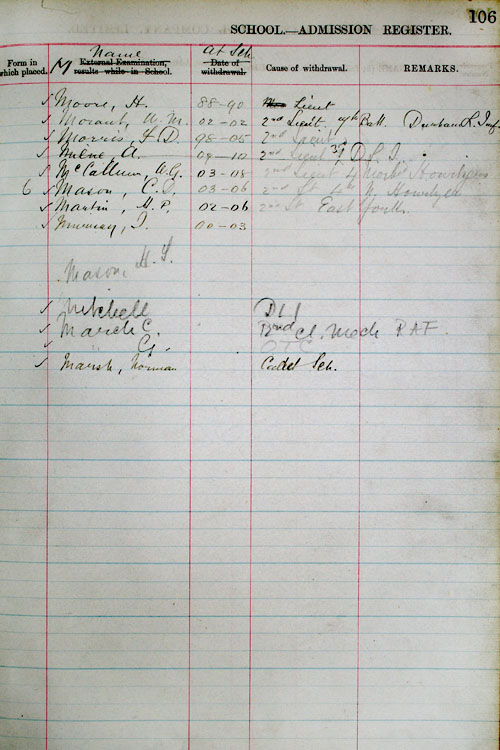 106
SCHOOL.—ADMISSION REGISTER.
Name At Sch.
Form in which placed. M External Examination, results while in School. Date of withdrawal. Cause of withdrawal. REMARKS.
✓ Moore, H. 88-90 Lieut
✓ Morant, W. M. 02-02 2nd Lieut. 9th Batt. Durham L. Inf.
✓ Morris, F. D. 98-05 2nd Lieut
✓ Milne, A. 09-10 2nd Lieut 3rd D.L.I.
✓ McCallum, A.G. 03-08 2nd Lieut 4 North Howitzers
6 ✓ Mason, C. J. 03-06 2nd Lt N. Howitzer
✓ Martin, H. P. 02-06 2nd Lt East Yorth.
✓ 00-03
Mason, H. F.
✓ Mitchell DLI
✓ March C. 2nd Cl. Mech R.A.F.
✓ " G. OTC
✓ Marsh, Norman Cadet Sch.